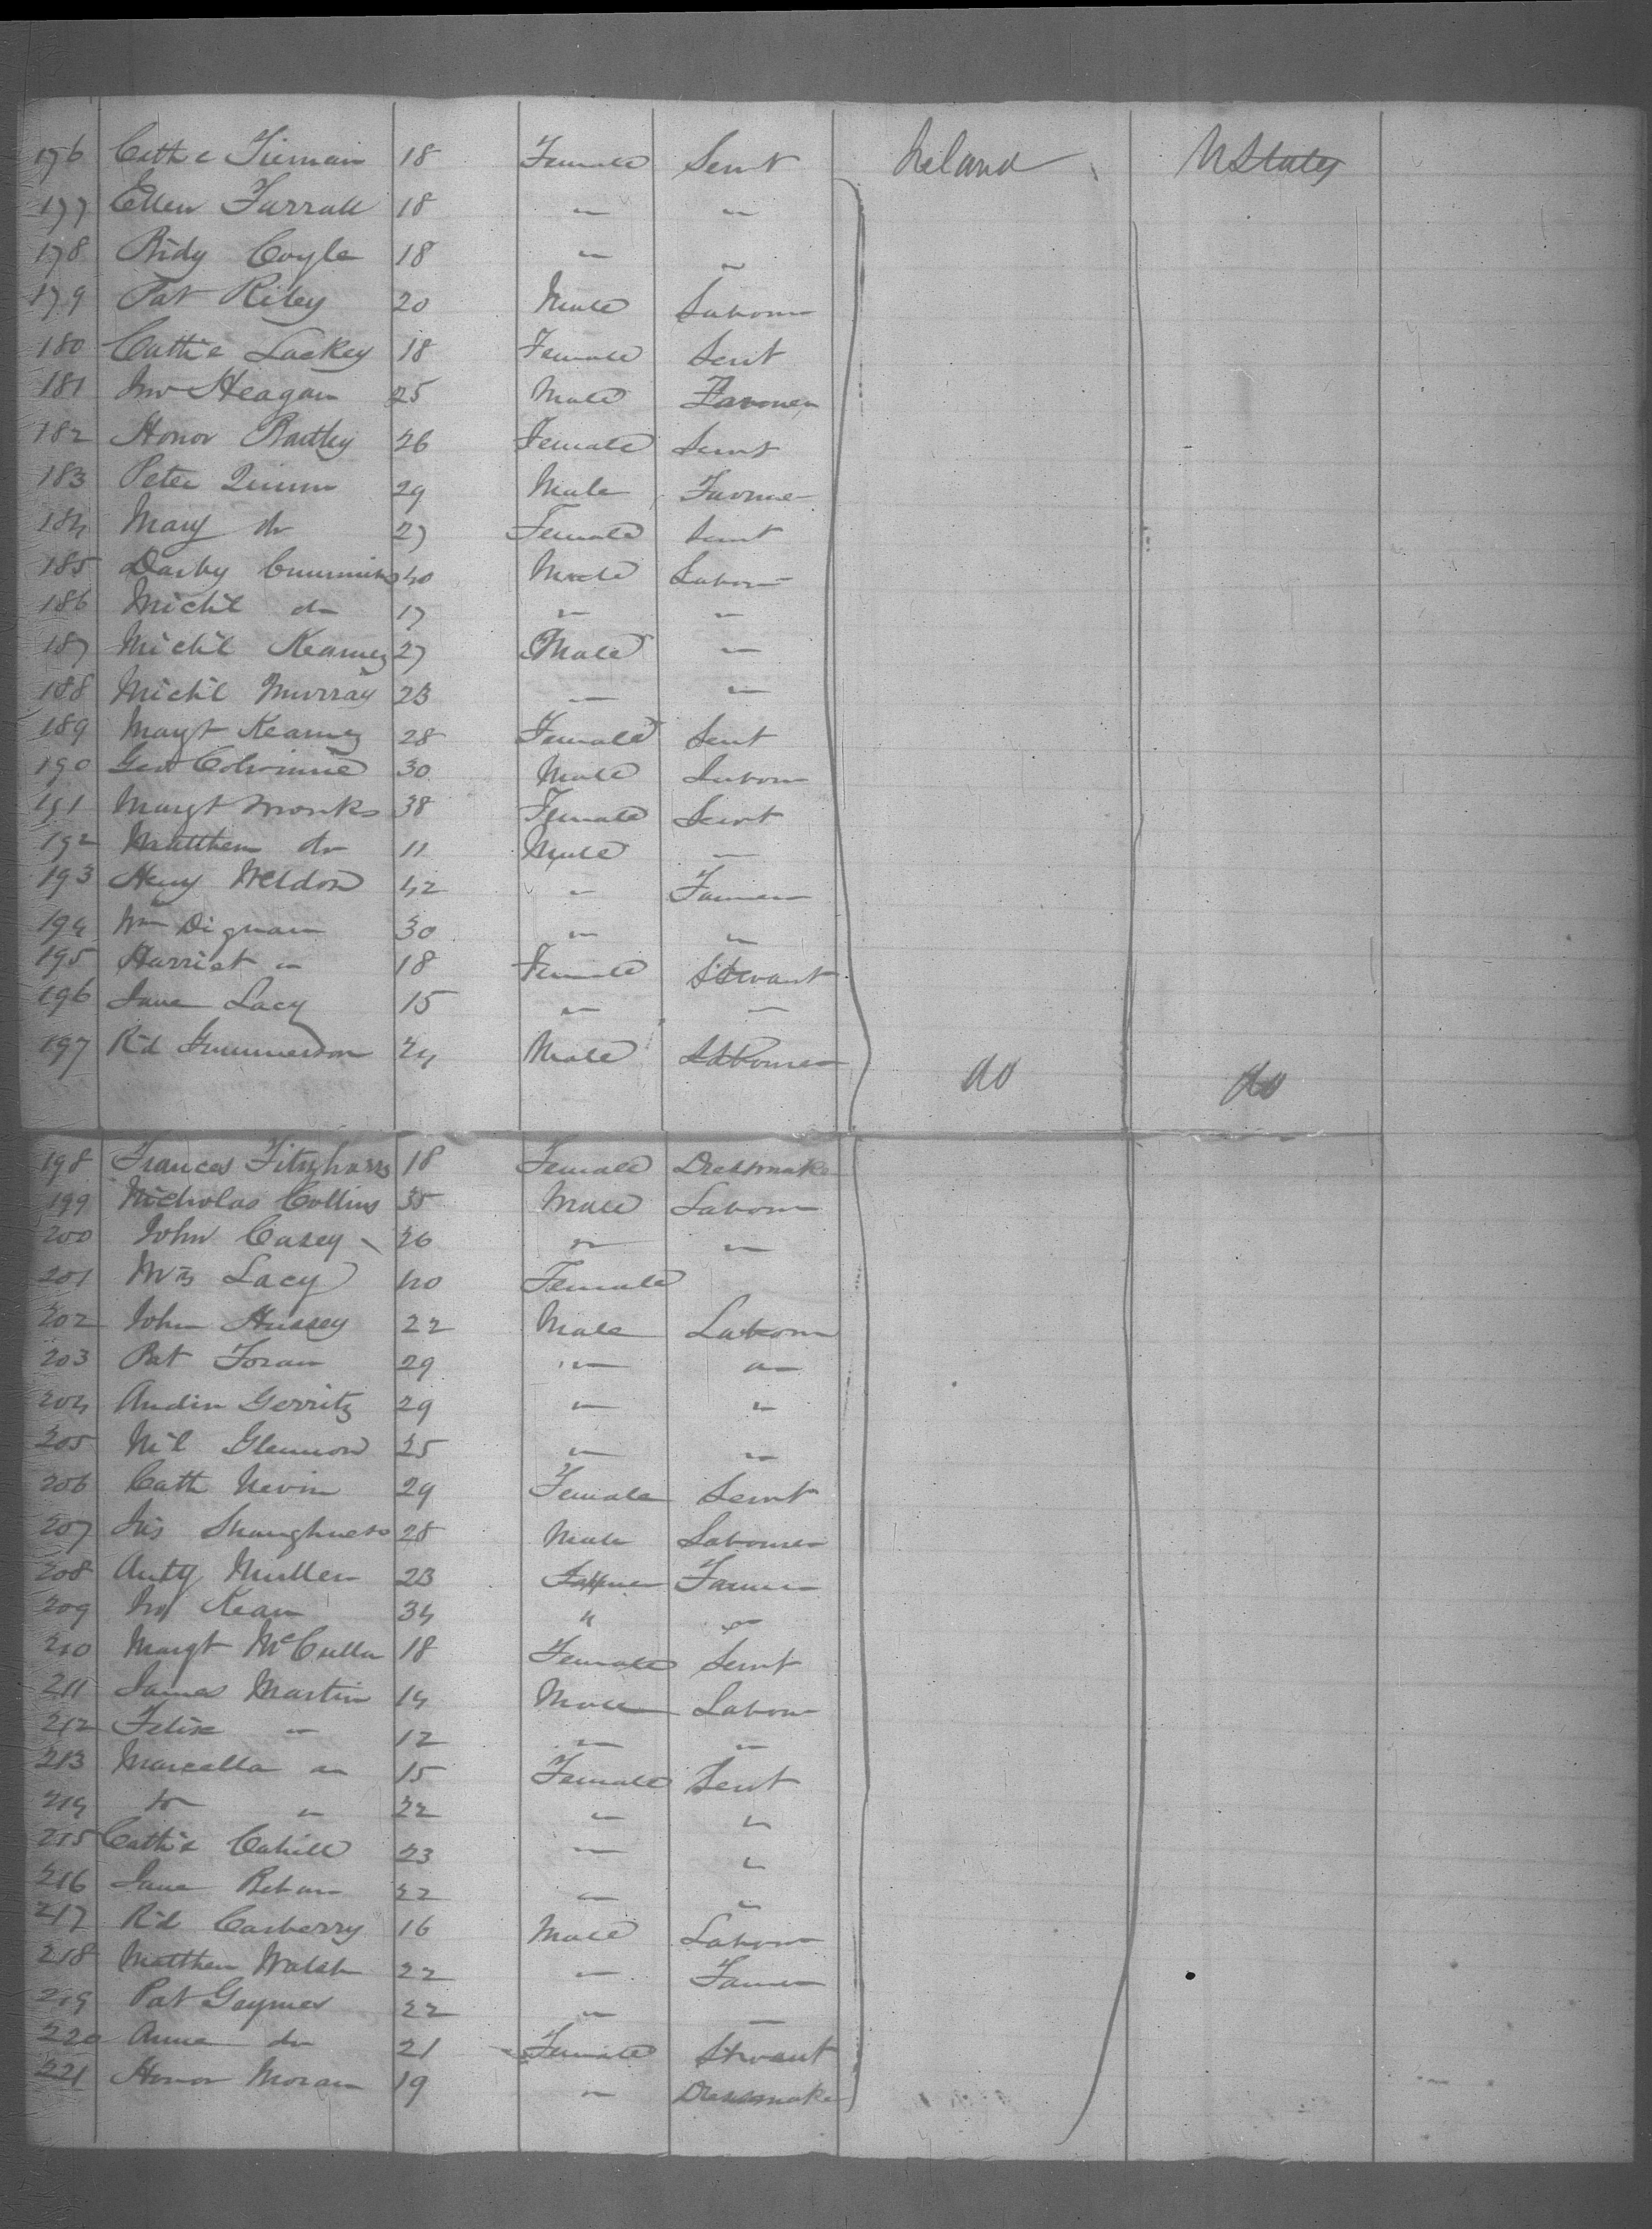 176 Cath e Tiernan 18 Female Servt Ireland U States
177 Ellen Farrall 18 " "
178 Bidy Coyle 18 " "
179 Pat Riley 20 Male Labour
180 Cath e Lackey 18 Female Servt
181 Jno Heagan 25 Male Farmer
182 Honor Bartley 26 Female Servt
183 Peter Quinn 29 Male Farmer
184 Mary do 27 Female Servt
185 Darby Cummins 40 Male Labour
186 Michl do 17 " "
187 Michl Kearney 27 Male "
188 Michl Murray 23 " "
189 Margt Kearney 28 Female Servt
190 Geo 30 Male Labour
191 Margt Monks 38 Female Servt
192 Matthew do 11 Male "
193 Henry Weldon 42 " Farmer
194 Wm Dignam 30 " "
195 Harriet " 18 Female Servant
196 Jane Lacy 15 " "
197 Rd 24 Male Labourer do do
198 Frances Fitzharris 18 Female Dressmaker
199 Nicholas Collins 35 Male Labour
200 John Casey 26 " "
201 Mrs Lacy 40 Female
202 John Hussey 22 Male Labour
203 Pat Foran 29 " "
204 Gerrity 29 " "
205 Ml Glennon 25 " "
206 Cath Nevin 29 Female Servt
207 Jas Shaughness 28 Male Labourer
208 Anty Mullen 23 Farmer
209 Kean 34 " "
210 Margt McCulla 18 Female Servt
211 James Martin 14 Male Labour
212 Felix " 12 " "
213 Marcella " 15 Female Servt
214 do " 22 " "
215 Cath e Cahill 23 " "
216 Jane Behan 22 " "
217 Rd Carberry 16 Male Labour
218 Matthew Walsh 22 " Farmer
219 Pat Gaynor 22 " "
220 Anne do 21 Female Servant
221 Honor Moran 19 " Dressmaker